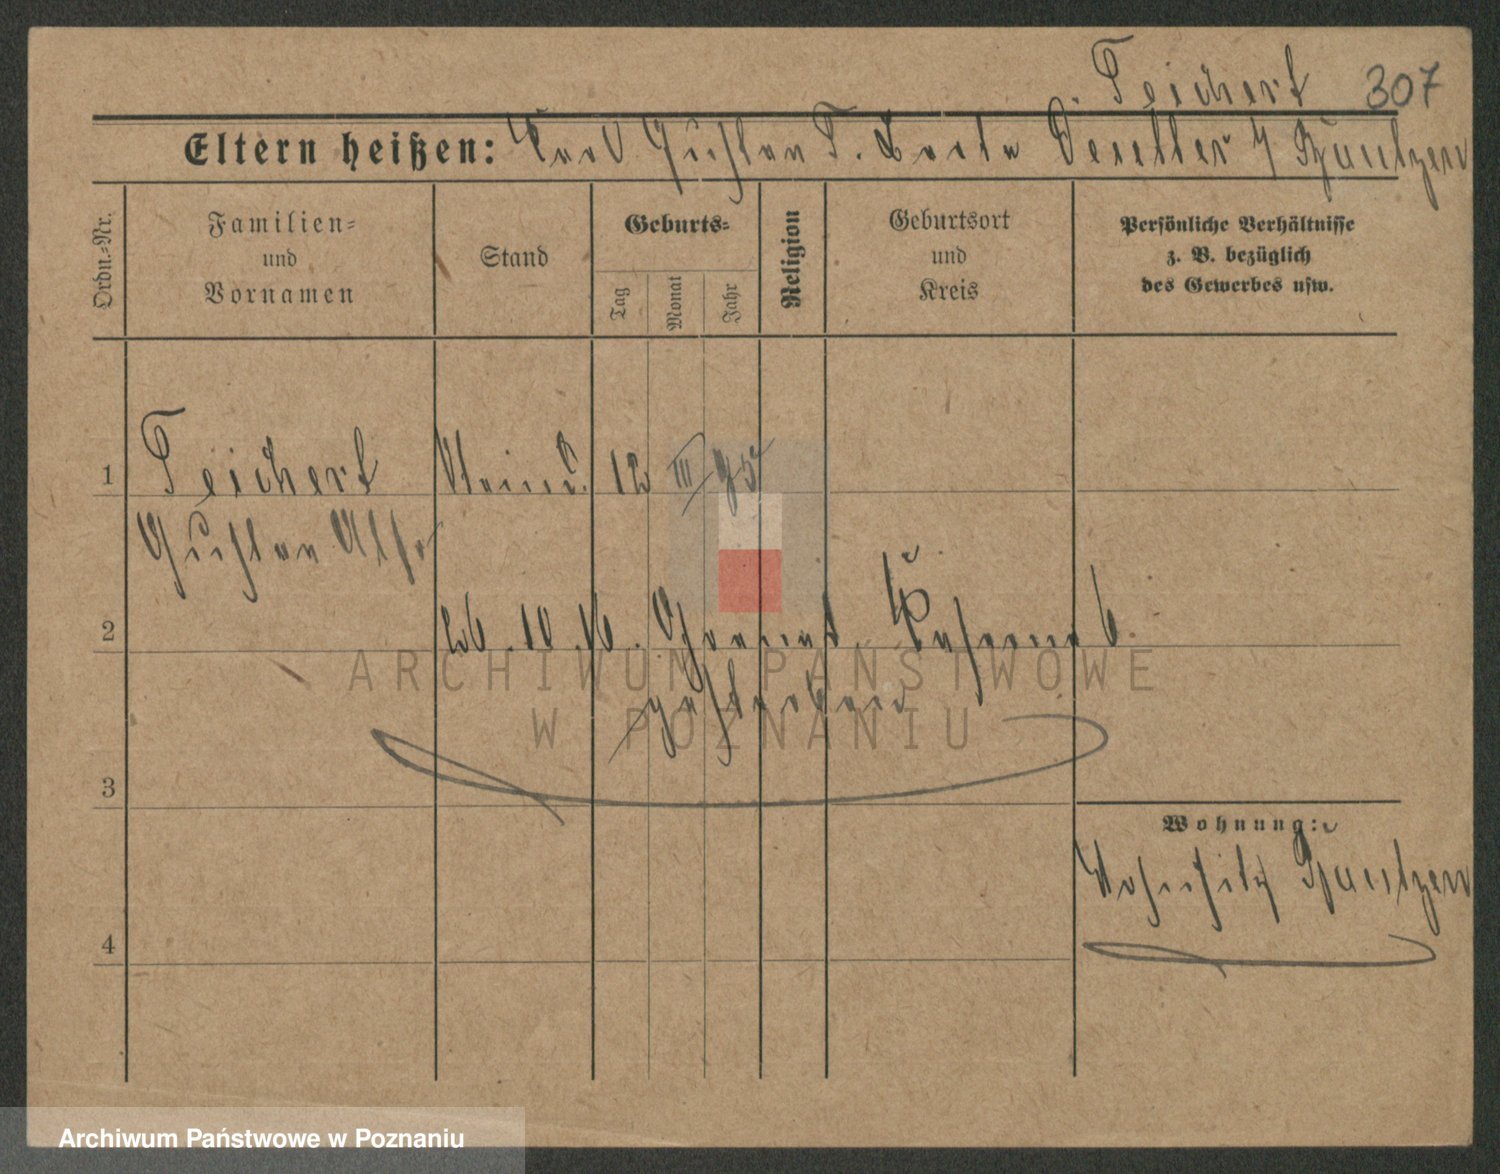 Teichert 307
Eltern heißen: Karl Gustav T. Berta
Ordn.-Nr.
Familien-
und
Vornamen
Stand
Geburts-
Tag
Monat
Jahr
Religion
Geburtsort
und
Kreis
Persönliche Verhältnisse
z. B. bezüglich
des Gewerbes usw.
1 Teichert 12 III 95
Gustav
2 26.10.16.
gestorben
ARCHIWUM PAŃSTWOWE
W POZNANIU
3
Wohnung:
Wohnsitz
4
Archiwum Państwowe w Poznaniu